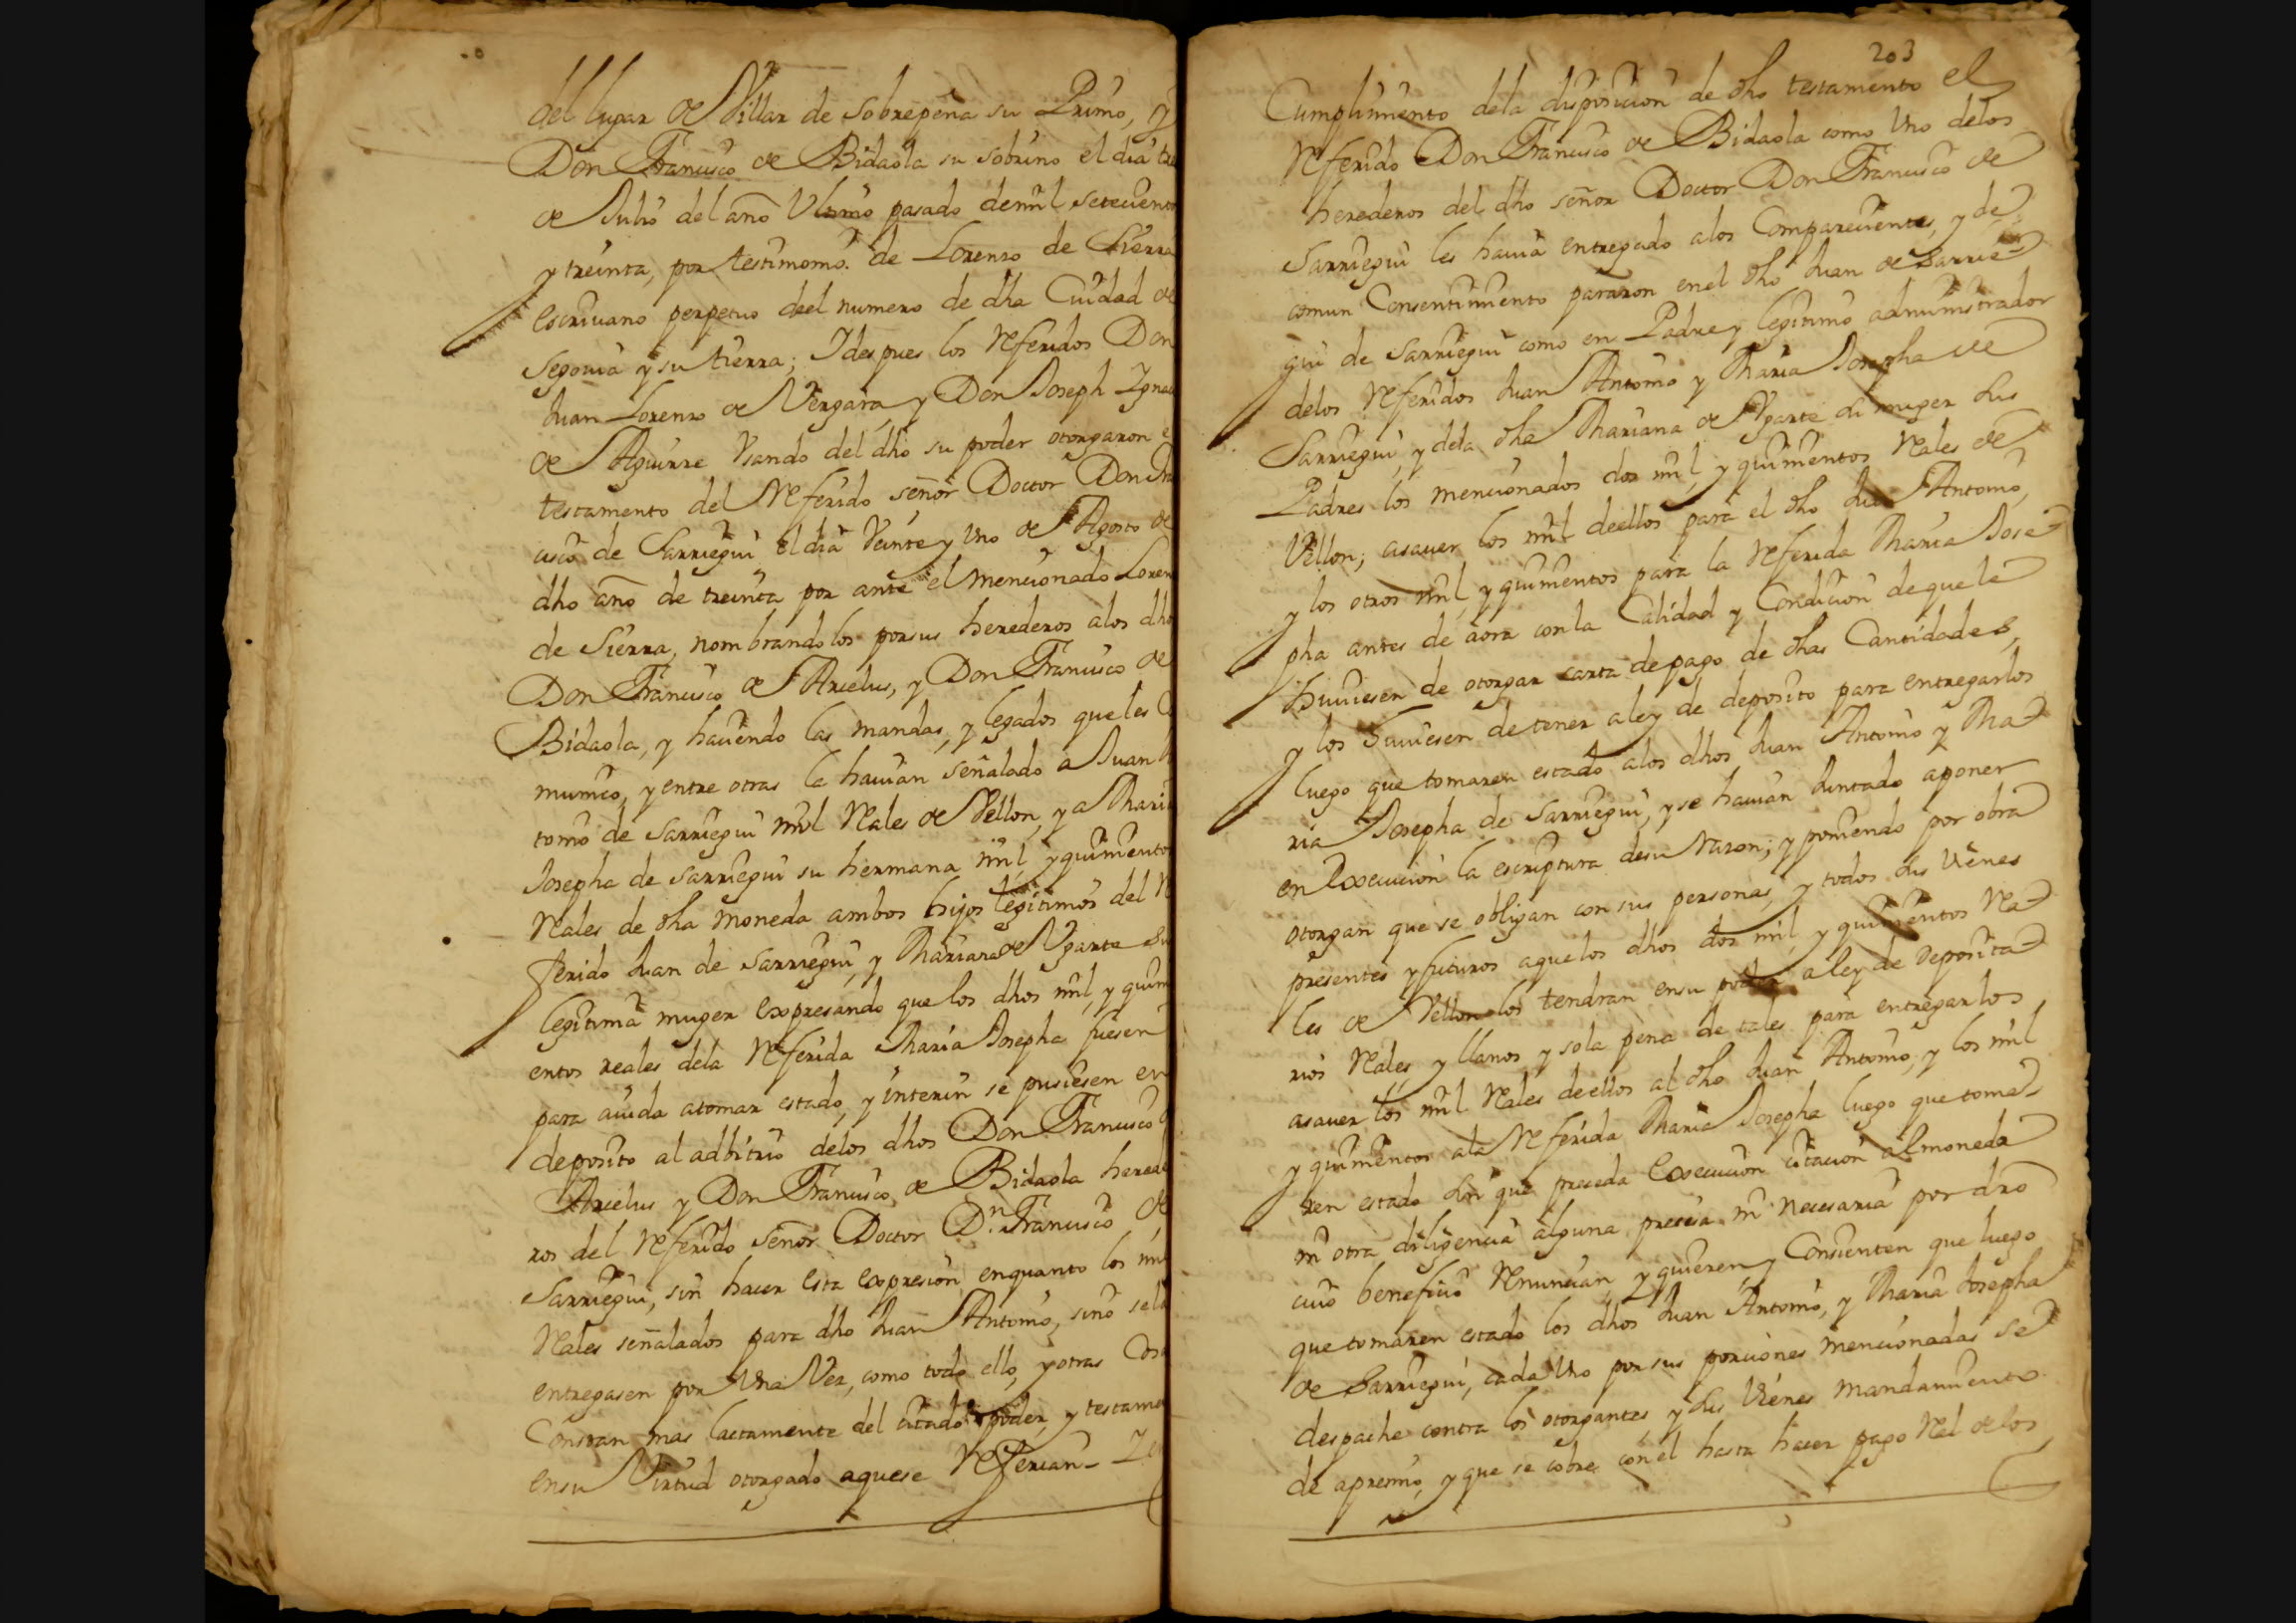 del lugar de Villar de Sobrepeña su Primo, y
Don Francisco de Bidaola su sobrino el dia
de Julio del año Ultimo pasado de mil setecient
y treinta, por testimonio de Lorenzo de Sierra
escriuano perpetuo deel numero de dha Ciudad de
Segouia y su tierra; I despues los Referidos Don
Juan Lorenzo de Vergara, y Don Joseph Igna
de Aguirre Usando del dho su poder otorgaron e
testamento del Referido señor Doctor Don Fra
cisco de Sarriegui el dia Veinte y Uno de Agosto de
dho año de treinta por ante el mencionado Loren
de Sierra, nombrandolos por sus herederos alos dho
Don Francisco de Arcelus, y Don Francisco de
Bidaola, y hauiendo las mandas, y legados que les
munico, y entre otras le hauian señalado a Juan
tonio de Sarriegui mil Reales de Vellon, y a Mari
Josepha de Sarriegui su hermana mil, y quiniento
Reales de dha moneda ambos hijos legitimos del R
ferido Juan de Sarriegui, y Mariana de Ugarte su
legitima muger expresando que los dhos mil, y quin
entos reales dela Referida Maria Josepha fuesen
para aiuda atomar estado, y interin se pusiesen en
deposito al adbitrio delos dhos Don Francisco
Arcelus y Don Francisco de Bidaola hered
ros del Referido señor Doctor Dn. Francisco de
Sarriegui, sin hacer esta expresion enquanto los mil
Reales señalados para dho Juan Antonio, sino se lo
entregasen por Una Vez, como todo ello, y otras Cos
Constan mas lactamente del citado poder, y testame
ensu Virtud otorgado aquese Referian-
203
Cumplimiento dela disposicion de dho testamento el
Referido Don Francisco de Bidaola como Uno delos
herederos del dho señor Doctor Don Francisco de
Sarriegui les hauia entregado alos Comparecientes, y de
comun Consentimiento pararon enel dho Juan de Sarrie-
gui de Sarriegui como en Padre y legitimo administrador
delos Referidos Juan Antonio y Maria Josepha de
Sarriegui, y dela dha Mariana de Ugarte su muger sus
Padres los mencionados dos mil, y quinientos Reales de
Vellon; asauer los mil deellos para el dho Juan Antonio,
y los otros mil, y quinientos para la Referida Maria Jose-
pha antes de aora con la Calidad y Condicion de que le
huuiesen de otorgar carta de pago de dhas Cantidades,
y los huuiesen de tener a ley de deposito para entregarlos
luego que tomaren estado alos dhos Juan Antonio y Ma-
ria Josepha de Sarriegui, y se hauian Juntado aponer
en execucion la escriptura desu Razon; y poniendo por obra
otorgan que se obligan con sus personas, y todos sus Vienes
presentes y futuros aquelos dhos dos mil, y quinientos Rea-
les de Vellon los tendran ensu poder a ley de Deposita-
rios Reales y llanos y sola pena de tales para entregarlos,
asauer los mil Reales deellos al dho Juan Antonio, y los mil
y quinientos ala Referida Maria Josepha luego que toma-
ren estado sin que preceda execucion citacion almoneda
ni otra diligencia alguna precisa ni necesaria por dro
cuio beneficio Renuncian, y quieren, y Consienten que luego
que tomaren estado los dhos Juan Antonio, y Maria Josepha
de Sarriegui, cada Uno por sus porciones mencionadas se
despache contra los otorgantes, y sus Vienes mandamiento
de apremio, y que se cobre con el hasta hacer pago Real de los